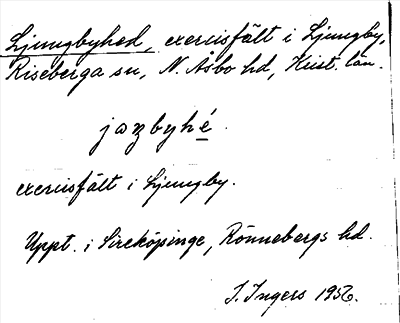 Ljungbyhed, exercisfält i Ljungby,
Riseberga sn, N. Åsbo hd, Krist. län.
jaŋbyhé.
exercisfält i Ljungby.
Uppt. i Sireköpinge, Rönnebergs hd.
I. Ingers 1956.